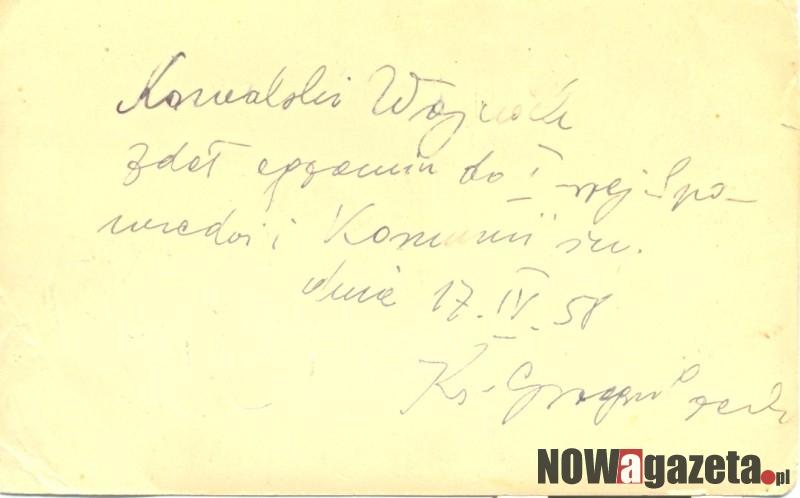 Kowalski Wojciech
zdał egzamin do I-szej Spo-
wiedzi i Komunii św.
dnia 17.IV.58
Ks.
NOWagazeta.pl